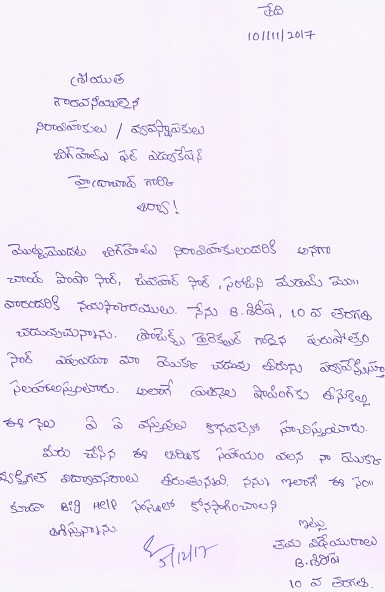 తేది
10/11/2017
శ్రీయుత
గౌరవనీయులైన
నిర్వాహకులు / వ్యవస్థాపకులు
బిగ్‌హెల్ప్ ఫర్ ఎడ్యుకేషన్
హైదరాబాద్ గారికి
ఆర్యా!
మొట్టమొదట బిగ్‌హెల్ప్ నిర్వాహకులందరికి అనగా
చాంద్ పాషా సార్, సార్, సరోజిని మేడమ్ మొ॥
వారందరికి నమస్కారములు. నేను B. శిరీష, 10 వ తరగతి
చదువుచున్నాను. ప్రాజెక్ట్స్ డైరెక్టర్ గారైన పురుషోత్తం
సార్ ఎప్పుడూ మా యొక్క చదువు తీరును పర్యవేక్షిస్తూ
సలహాలిస్తుంటారు. అలాగే ప్రతినెల షాపింగ్‌కు తీసుకెళ్ళి
ఈ నెల ఏ ఏ వస్తువులు కొనవలెనో సూచిస్తుంటారు.
మీరు చేసిన ఈ ఆర్థిక సహాయం వలన నా యొక్క
వ్యక్తిగత విద్యావసరాలు తీరుతున్నవి. నన్ను ఇలాగే ఈ సం॥
కూడా Big HELP సంస్థలో కొనసాగించాలని
ఆశిస్తున్నాను.
ఇట్లు
తమ విధేయురాలు
B. శిరీష
10 వ తరగతి.
5/12/17